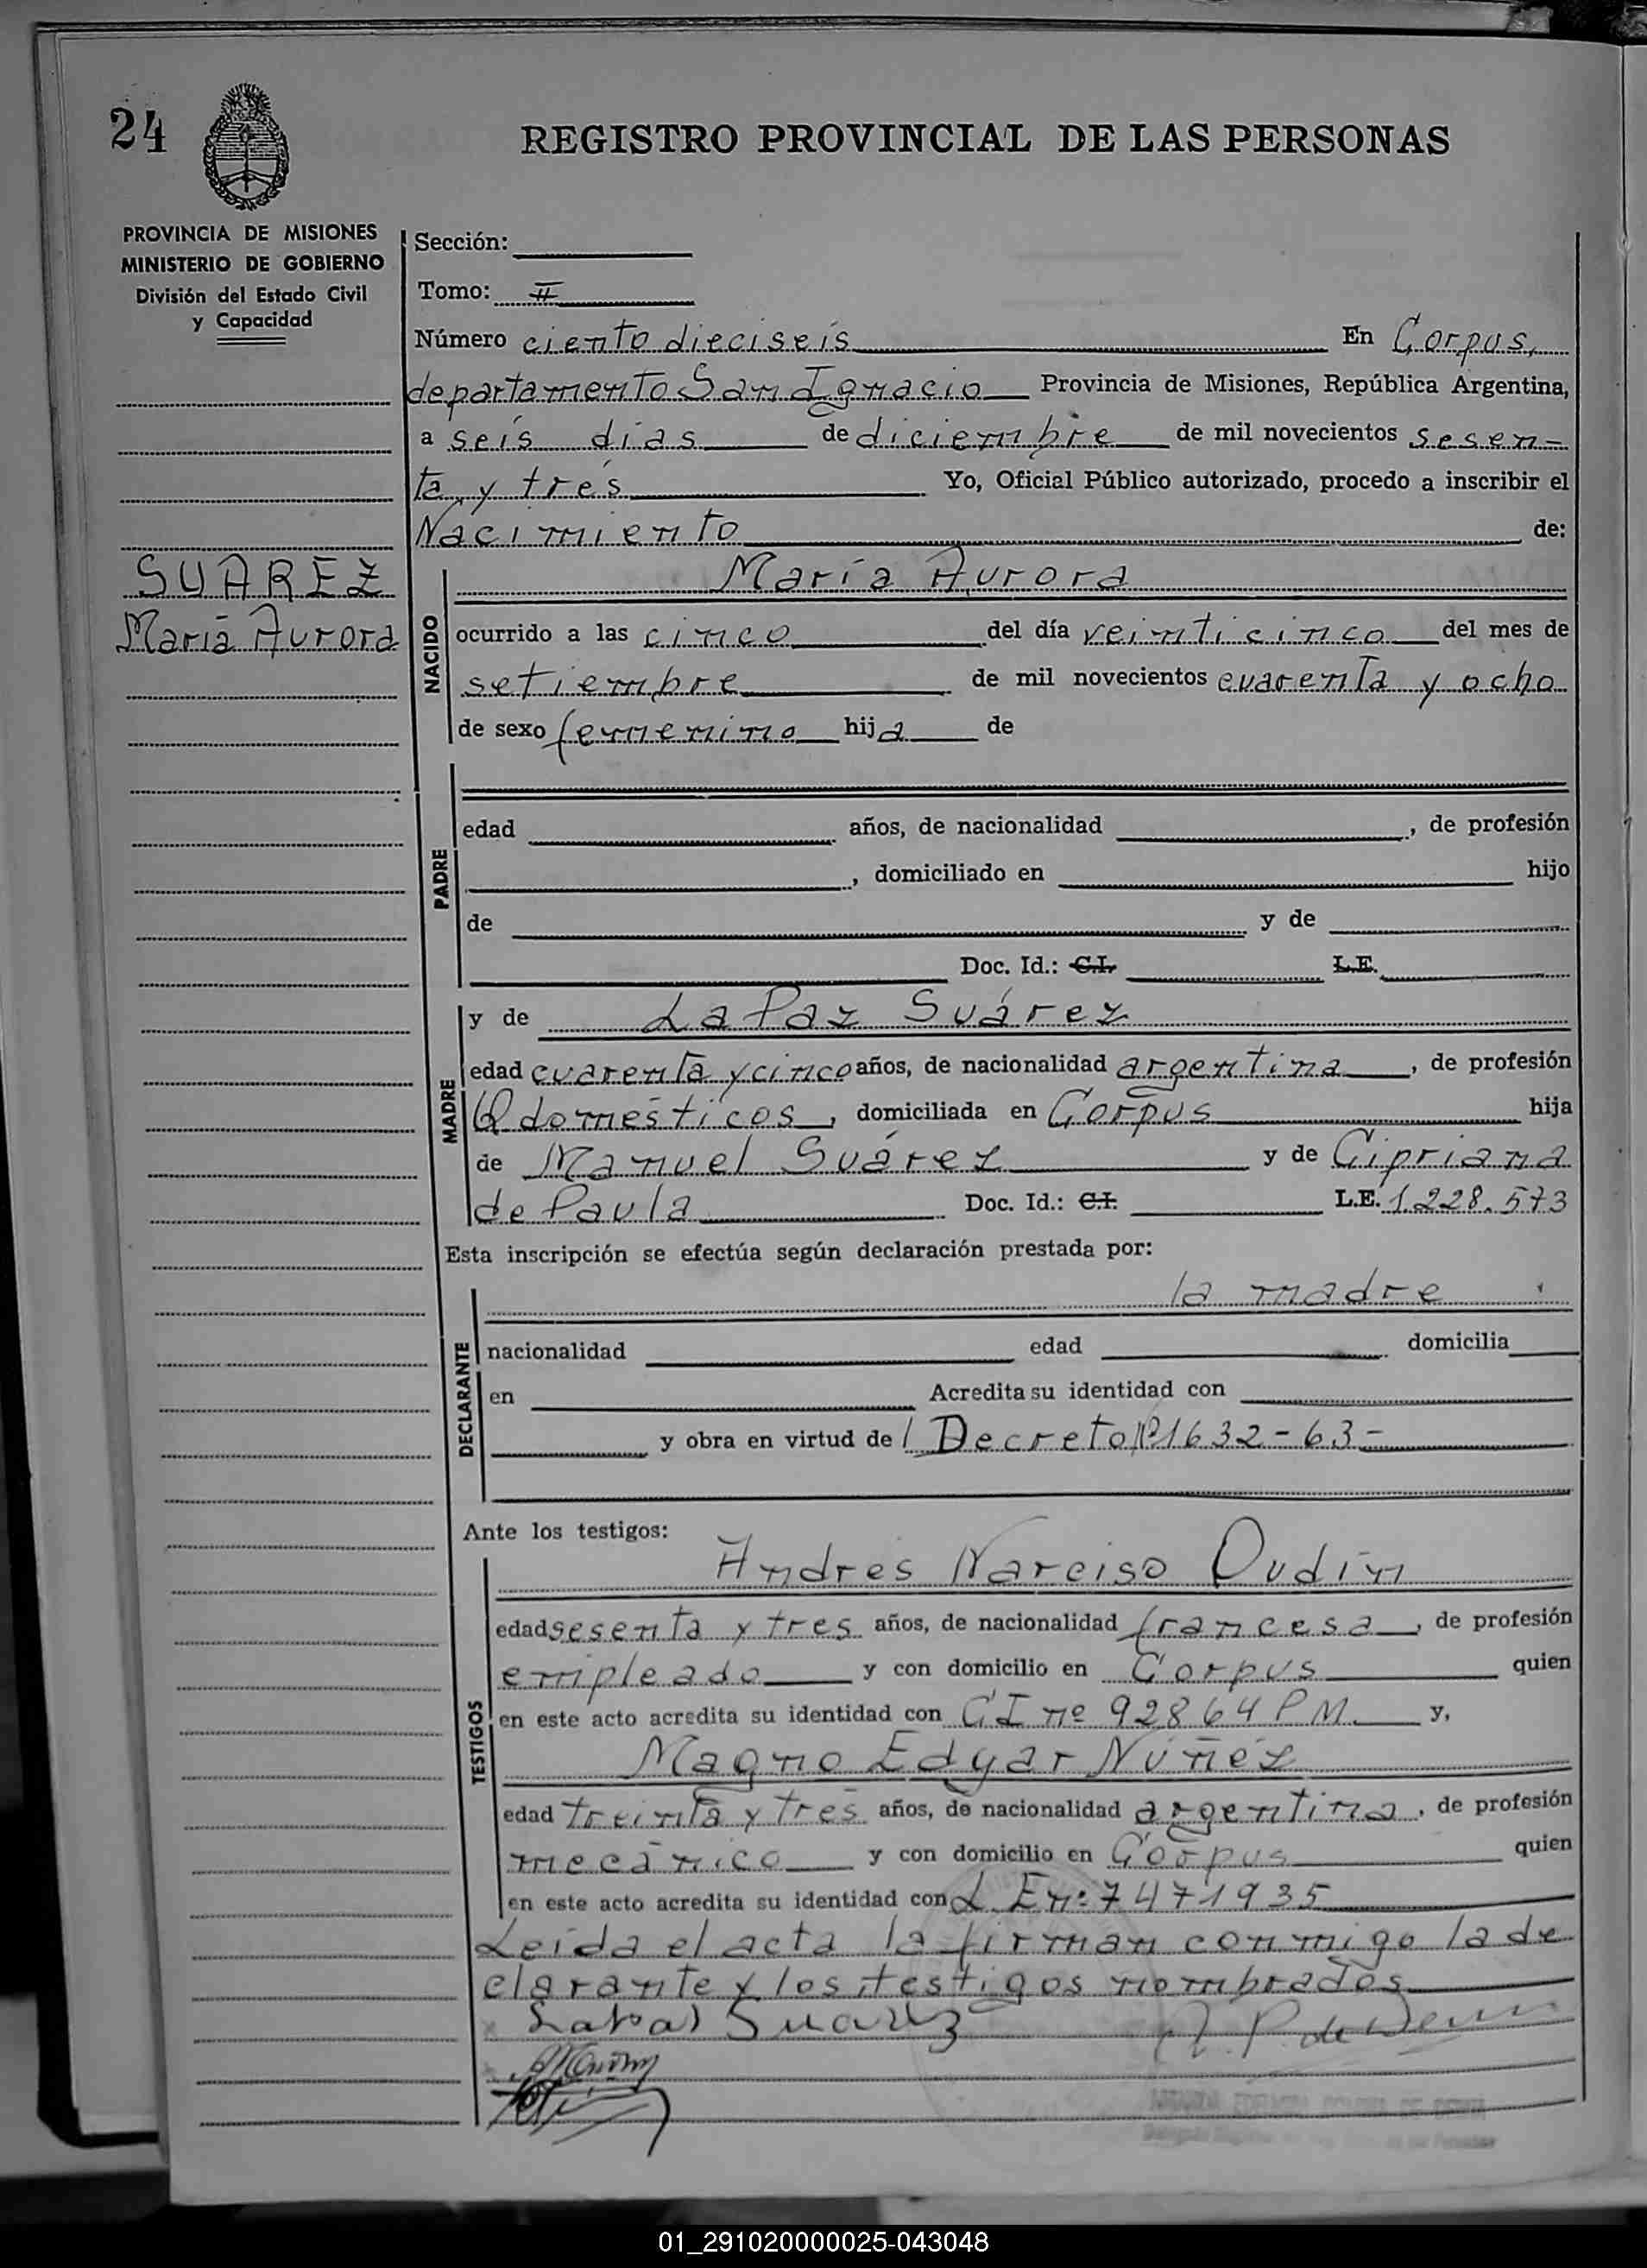 24
REGISTRO PROVINCIAL DE LAS PERSONAS
PROVINCIA DE MISIONES
MINISTERIO DE GOBIERNO
División del Estado Civil
y Capacidad
Sección:
Tomo: II
Número ciento dieciseis En Corpus,
departamento San Ignacio Provincia de Misiones, República Argentina,
a seis dias de diciembre de mil novecientos sesen-
ta y tres Yo, Oficial Público autorizado, procedo a inscribir el
Nacimiento de:
SUAREZ
María Aurora
NACIDO
María Aurora
ocurrido a las cinco del día veinticinco del mes de
setiembre de mil novecientos cuarenta y ocho
de sexo femenino hija de
PADRE
edad años, de nacionalidad , de profesión
, domiciliado en hijo
de y de
Doc. Id.: C.I. L.E.
MADRE
y de La Paz Suárez
edad cuarenta y cinco años, de nacionalidad argentina , de profesión
Q domésticos , domiciliada en Corpus hija
de Manuel Suárez y de Cipriana
de Paula Doc. Id.: C.I. L.E. 1.228.573
Esta inscripción se efectúa según declaración prestada por:
DECLARANTE
la madre
nacionalidad edad domicilia
en Acredita su identidad con
y obra en virtud de Decreto Nº 1632-63-
Ante los testigos:
TESTIGOS
Andrés Narciso Oudín
edad sesenta y tres años, de nacionalidad francesa , de profesión
empleado y con domicilio en Corpus quien
en este acto acredita su identidad con CI nº 92864 PM y,
Magno Edgar Núñez
edad treinta y tres años, de nacionalidad argentina , de profesión
mecánico y con domicilio en Corpus quien
en este acto acredita su identidad con L En: 7471935
Leída el acta la firman conmigo la de
clarante y los testigos nombrados
Suarez
01_291020000025-043048